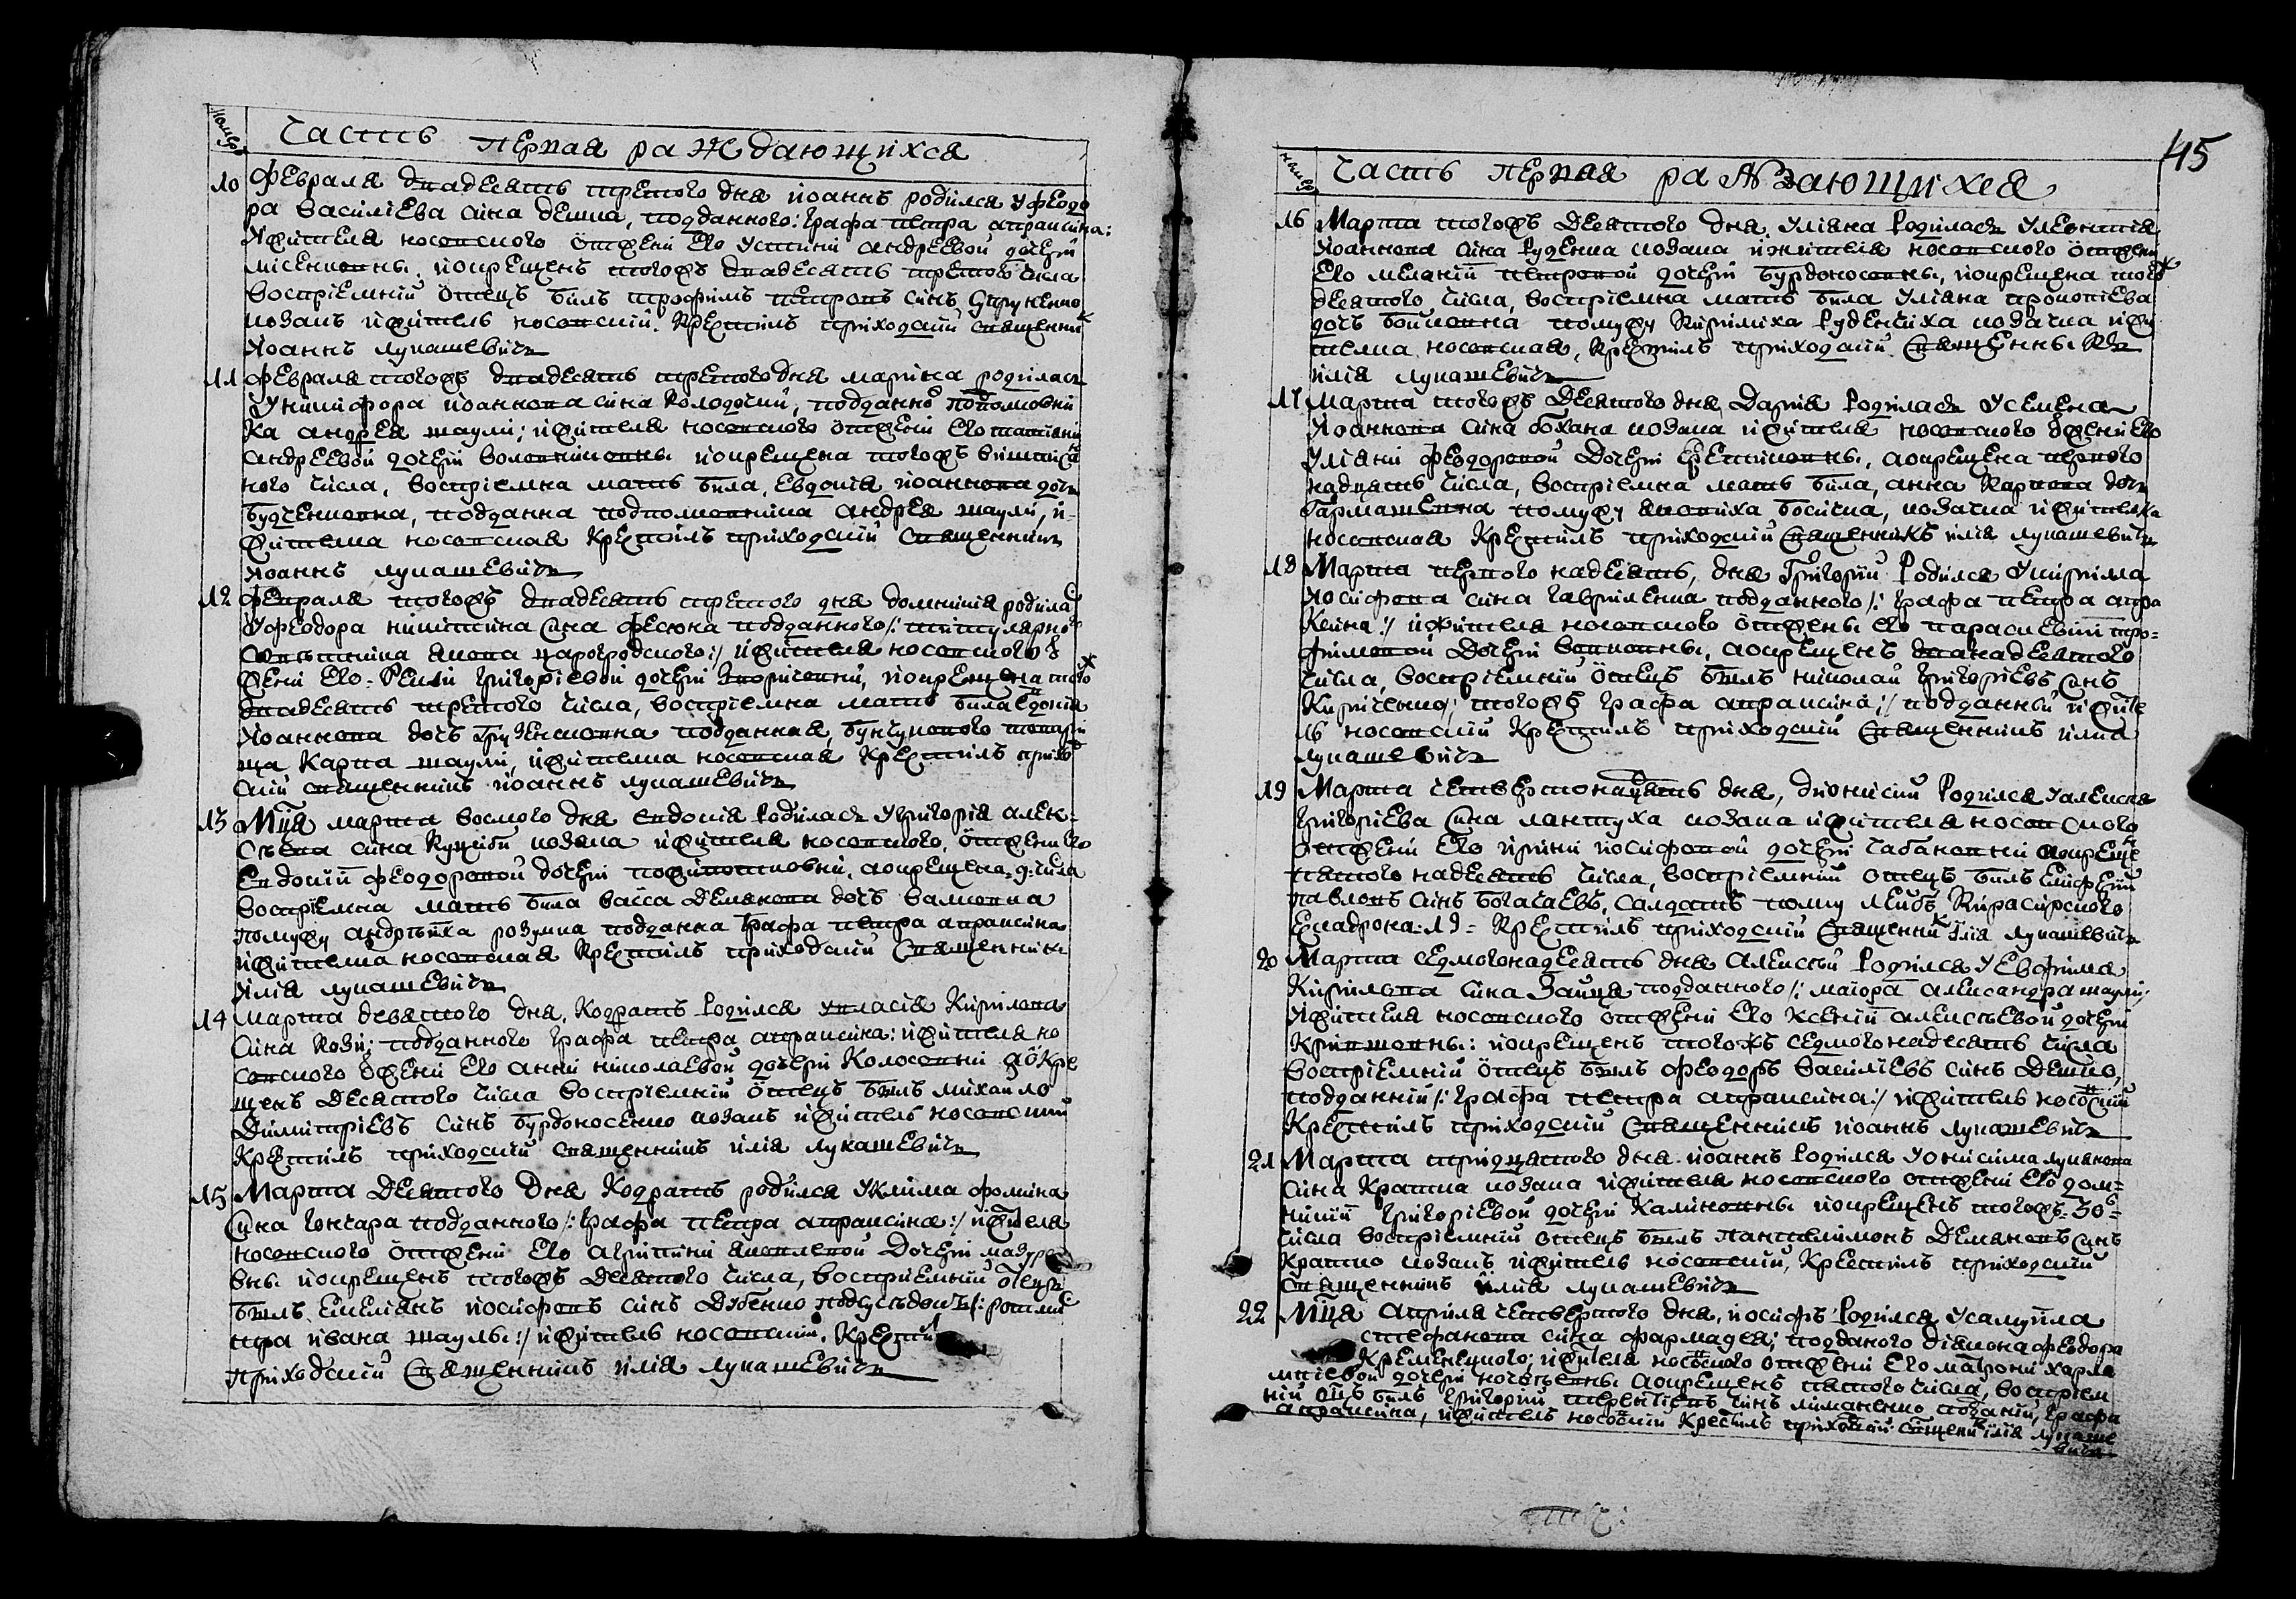 номер
Часть первая раждающихся
10 Февраля двадесять третого дня иоаннъ родился у феодо
ра василіева сина демка, подданного: графа петра апраксина:
жителя носовского от жени его устиніи андреевой дочери
лисенковны. иокрещенъ тогожъ двадесять третого числа
воспріемній отецъ билъ трофимъ петровъ синъ
козакъ ижитель носовскій. крестилъ приходскій священик
иоаннъ лукашевичъ
11 февраля тогожъ двадесять третого дня марина родилась
у никифора иоаннова сина колодочки, подданно полковни
ка андрея шаули; ижителя носовского от жени его татіяни
андреевой дочери иокрещена тогожъ
ного числа, воспріемна мать била, евдокія иоаннова дочь
будченковна, подданна полковника андрея шаули, и
жителка носовская крестилъ приходскій священникъ
иоаннъ лукашевичъ
12 февраля тогожъ двадесять третого дня домникія родилас
у феодора никитина сина фесюна подданного /: титулярно
совътника якова царогродского :/ ижителя носовского о
жени его григоріевой дочери иокрещена того ж
двадесять третого числа, воспріемна мать била евдокія
иоаннова дочь подданная, бунчукового товари
ща карпа шаули, ижителка носовская крестилъ приход
скій священникъ иоаннъ лукашевичъ
13 Мця марта восмого дня евдокія родилась у григорія алек
съева сина куцеби козака ижителя носовского, от жени его
евдокіи феодоровой дочери аокрещена, 9: числа
воспріемна мать била васса демянова дочь
помужу андръиха розумка подданна графа петра апраксина
ижителка носовская крестилъ приходскій священникъ
илія лукашевичъ
14 марта девятого дня, кодратъ родился у власія кирилова
сина кози: подданного графа петра апраксина: ижителя но
совского от жени его анни николаевой дочери колосовни аокре
щенъ десятого числа воспріемній отецъ билъ михайло
димитріевъ синъ бурдоносенко козакъ ижитель носовскій
крестилъ приходскій священникъ илія лукашевичъ
15 Марта десятого дня кодратъ родился у клима фомина
сина гончара подданного /: графа петра апраксина :/ ижителя
носовского от жени его агрипини яковлевой дочери
вни иокрещенъ тогожъ десятого числа, воспріемній отецъ
билъ емеліянъ иосифовъ синъ дубенко подсусъдокъ /: ротмис
тра ивана шаули :/ ижитель носовскій, крестил
приходскій священникъ илія лукашевичъ

45
номер
Часть первая раждающихся
16 Марта тогожъ десятого дня уліяна родилась у леонтія
иоаннова сина руденка козака ижителя носовского от жени
его меланіи петровой дочери бурдоносовни, иокрещена того ж
десятого числа, воспріемна мать била уліяна прокопіева
дочь бойковна помужу кирилиха руденчиха козачка ижи
телка носовская, крестилъ приходскій священникъ
илія лукашевичъ
17 Марта тогожъ десятого дня, дарія родилась у семена
иоаннова сина бохана козака ижителя носовского от жени его
уліяни феодоровой дочери аокрещена первого
надцять числа, воспріемна мать била, анна карпова дочь
гармашевна помужу яковиха козачка ижителка
носовская крестилъ приходскій священникъ илія лукашевичъ
18 Марта первого надесять, дня григорій родился у кирила
иосифова сина гавриленка подданного /: графа петра апра
ксина :/ ижителя носовского от жены его параскевіи тро
фимовой дочери вовковны, аокрещенъ дванадесятого
числа, воспріемній отецъ билъ николай григоріевъ синъ
киріченко; тогожъ графа апраксина :/ подданній ижите
ль носовскій крестилъ приходскій священникъ илия
лукашевичъ
19 Марта четвертонадцать дня, дионисій родился у алексея
григоріева сина лантуха козака ижителя носовского
от жени его ирини иосифовой дочери чабановни аокреще
пятого надесять числа, воспріемній отецъ билъ
павловъ синъ богачаевъ, салдатъ полку лейбъ кирасирского
ескадрона: 19 = крестилъ приходскій священник илія лукашевичъ
20 Марта седмогонадесять дня алексъй родился у евфима
кирилова сина зайця подданного /: маіора александра шаули:
ижителя носовского от жени его ксеніи алексъевой дочери
иокрещенъ тогожъ седмогонадесять числа
воспріемній отецъ билъ феодоръ василіевъ синъ демко,
подданній /: графа петра апраксина :/ ижитель носовскій
крестилъ приходскій священникъ иоаннъ лукашевичъ
21 Марта тридцятого дня иоаннъ родился у онисима лукянова
сина кратка козака ижителя носовского от жени его дом
никіи григоріевой дочери калиновны иокрещенъ тогожъ: 30 =
числа воспріемній отецъ билъ пантелимонъ демяновъ синъ
кратко козакъ ижитель носовскій, крестилъ приходскій
священникъ илия лукашевичъ
22 Мця априля четвертого дня, иосифъ родился у самуила
стефанова сина подданого діякона феодора
кременецкого; ижителя носовского от жени его матрони харла
мпіевой дочери аокрещенъ пятого числа, воспріем
ній оцъ билъ григорій терентіевъ синъ лиманенко подданій, графа
апраксина, ижитель носовскій крестилъ приходскій священик илія лукаше
вичъ